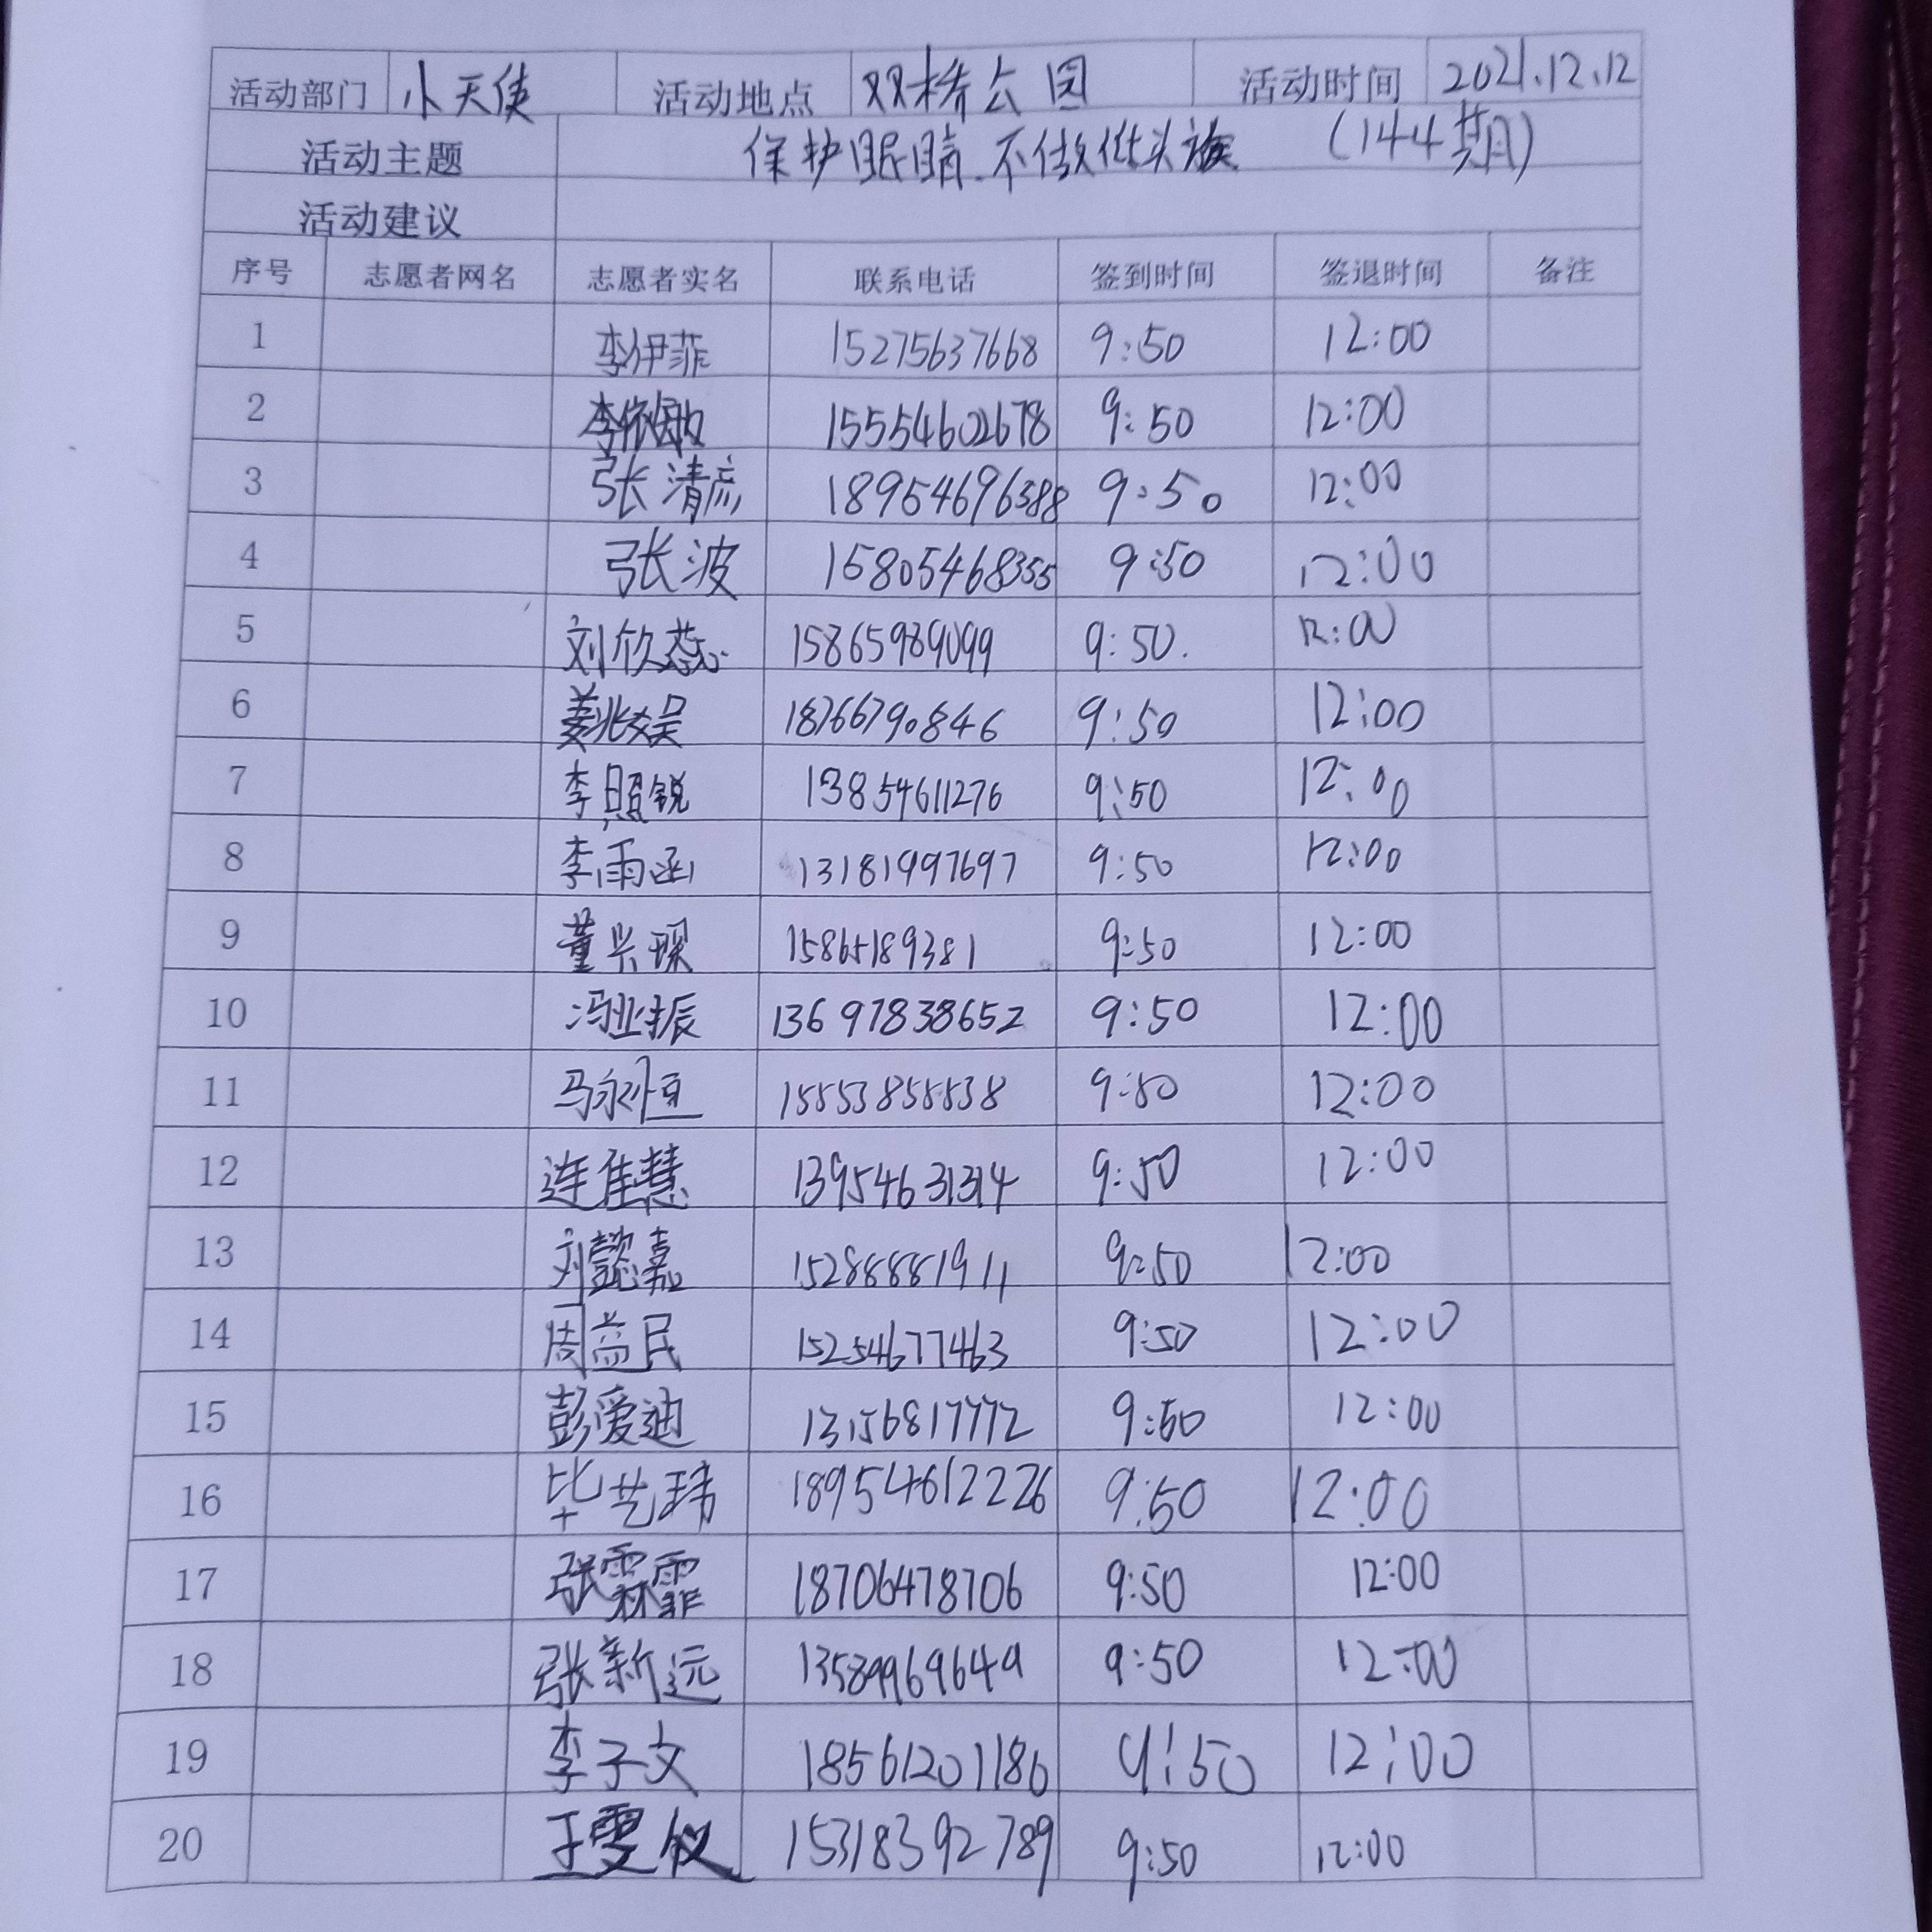 活动部门 小天使 活动地点 双桥公园 活动时间 2021.12.12
活动主题 保护眼睛.不做低头族 (144期)
活动建议
序号 志愿者网名 志愿者实名 联系电话 签到时间 签退时间 备注
1 李伊菲 15275637668 9:50 12:00
2 15554602678 9:50 12:00
3 张清 18954696388 9:50 12:00
4 张波 15805468355 9:50 12:00
5 刘欣蕊 15865989099 9:50. 12:00
6 18766790846 9:50 12:00
7 李照锐 13854611276 9:50 12:00
8 李雨函 13181997697 9:50 12:00
9 董兴琛 15865189381 9:50 12:00
10 冯业振 13697838652 9:50 12:00
11 马永恒 15553855538 9:50 12:00
12 连佳慧 13954631314 9:50 12:00
13 刘懿嘉 15288881911 9:50 12:00
14 周益民 15254677463 9:50 12:00
15 彭爱迪 13156817772 9:50 12:00
16 毕艺玮 18954612226 9:50 12:00
17 张霖霏 18706478706 9:50 12:00
18 张新远 13589969649 9:50 12:00
19 李子文 18561201186 9:50 12:00
20 王雯仪 15318392789 9:50 12:00